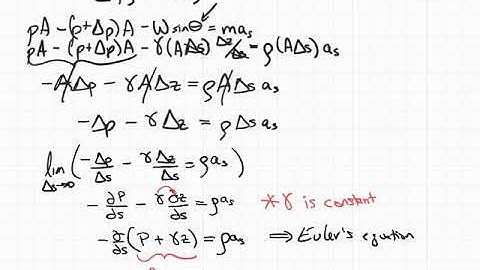 pA - (p+Δp)A - W sinθ = ma_s
pA - (p+Δp)A - γ(AΔs) Δz/Δs = ρ(AΔs) a_s
-AΔp - γAΔz = ρAΔs a_s
-Δp - γΔz = ρΔs a_s
lim Δs→0 (-Δp/Δs - γΔz/Δs = ρa_s)
-∂p/∂s - γ∂z/∂s = ρa_s *γ is constant
-∂/∂s (p + γz) = ρa_s ⇒ Euler's equation